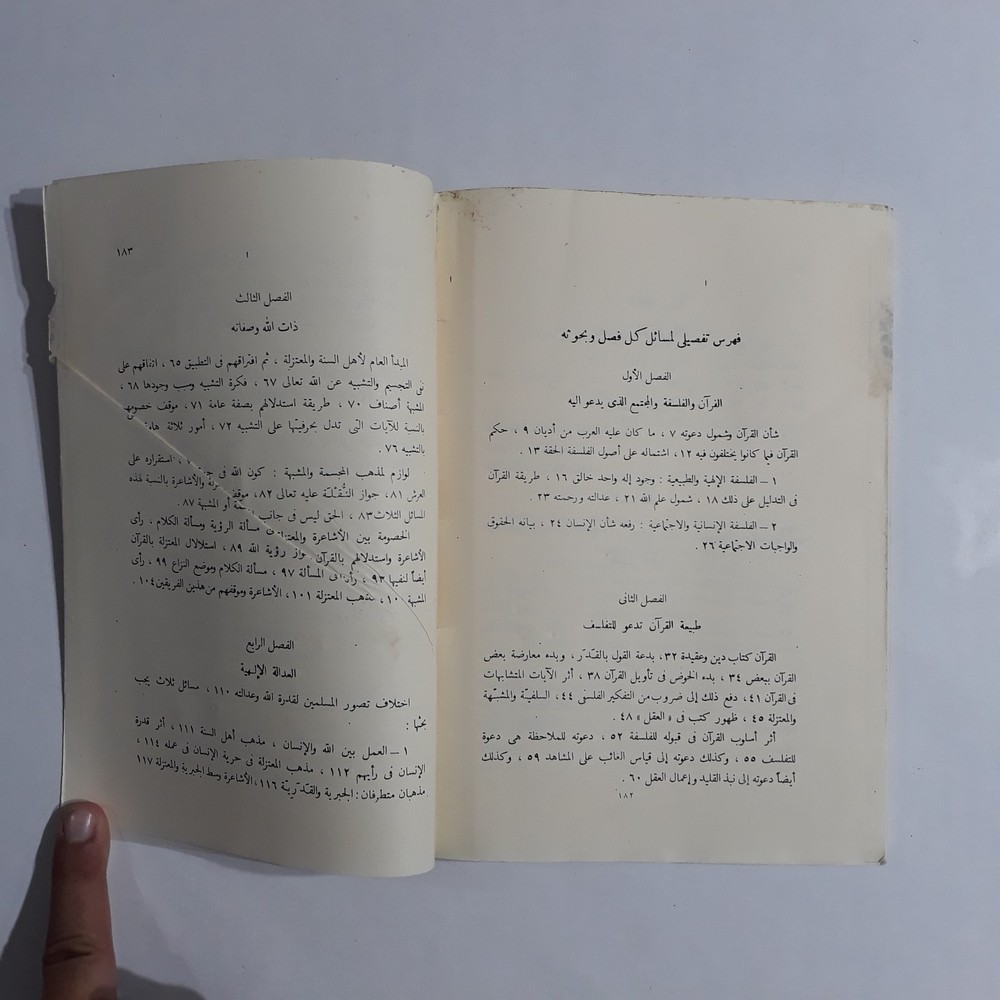 فهرس تفصيلى لمسائل كل فصل وبحوثه
الفصل الأول
القرآن والفلسفة والمجتمع الذى يدعو اليه
شأن القرآن وشمول دعوته ٧ ، ما كان عليه العرب من أديان ٩ ، حكم
القرآن فيما كانوا يختلفون فيه ١٢ ، اشتماله على أصول الفلسفة الحقة ١٣ .
١ – الفلسفة الإلهية والطبيعية : وجود إله واحد خالق ١٦ ، طريقة القرآن
فى التدليل على ذلك ١٨ ، شمول علم الله ٢١ ، عدالته ورحمته ٢٣ .
٢ – الفلسفة الإنسانية والاجتماعية : رفعه شأن الإنسان ٢٤ ، بيانه الحقوق
والواجبات الاجتماعية ٢٦ .
الفصل الثانى
طبيعة القرآن تدعو للتفلسف
القرآن كتاب دين وعقيدة ٣٢ ، بدعة القول بالقدر ، وبدء معارضة بعض
القرآن ببعض ٣٤ ، بدء الخوض فى تأويل القرآن ٣٨ ، أثر الآيات المتشابهات
فى القرآن ٤١ ، دفع ذلك إلى ضروب من التفكير الفلسفى ٤٤ ، السلفية والمشبهة
والمعتزلة ٤٥ ، ظهور كتب فى « العقل » ٤٨ .
أثر أسلوب القرآن فى قبوله للفلسفة ٥٢ ، دعوته للملاحظة هى دعوة
للتفلسف ٥٥ ، وكذلك دعوته إلى قياس الغائب على المشاهد ٥٩ ، وكذلك
أيضاً دعوته إلى نبذ التقليد وإعمال العقل ٦٠ .
١٨٢
١٨٣
الفصل الثالث
ذات الله وصفاته
المبدأ العام لأهل السنة والمعتزلة ، ثم افتراقهم فى التطبيق ٦٥ ، اتفاقهم على
نفى التجسيم والتشبيه عن الله تعالى ٦٧ ، فكرة التشبيه وسبب وجودها ٦٨ ،
المشبهة أصناف ٧٠ ، طريقة استدلالهم بصفة عامة ٧١ ، موقف خصومهم
بالنسبة للآيات التى تدل بحرفيتها على التشبيه ٧٢ ، أمور ثلاثة
بالتشبيه ٧٦ .
لوازم لمذهب المجسمة والمشبهة : كون الله فى ، استقراره على
العرش ٨١ ، جواز النُّقلة عليه تعالى ٨٢ ، والأشاعرة بالنسبة لهذه
المسائل الثلاث ٨٣ ، الحق ليس فى جانب أو المشبهة ٨٧ .
الخصومة بين الأشاعرة والمعتزلة فى مسألة الرؤية ومسألة الكلام ، رأى
الأشاعرة واستدلالهم بالقرآن رؤية الله ٨٩ ، استدلال المعتزلة بالقرآن
أيضاً لنفيها ٩٣ ، المسألة ٩٧ ، مسألة الكلام وموضع النزاع ٩٩ ، رأى
المشبهة ، مذهب المعتزلة ١٠١ ، الأشاعرة وموقفهم من هذين الفريقين ١٠٤ .
الفصل الرابع
العدالة الإلهية
اختلاف تصور المسلمين لقدرة الله وعدالته ١١٠ ، مسائل ثلاث يجب
بحثها :
١ – العمل بين الله والإنسان ، مذهب أهل السنة ١١١ ، أثر قدرة
الإنسان فى رأيهم ١١٢ ، مذهب المعتزلة فى حرية الإنسان فى عمله ١١٤ ،
مذهبان متطرفان : الجبرية والقدرية ١١٦ ، الأشاعرة وسط الجبرية والمعتزلة ١١٧